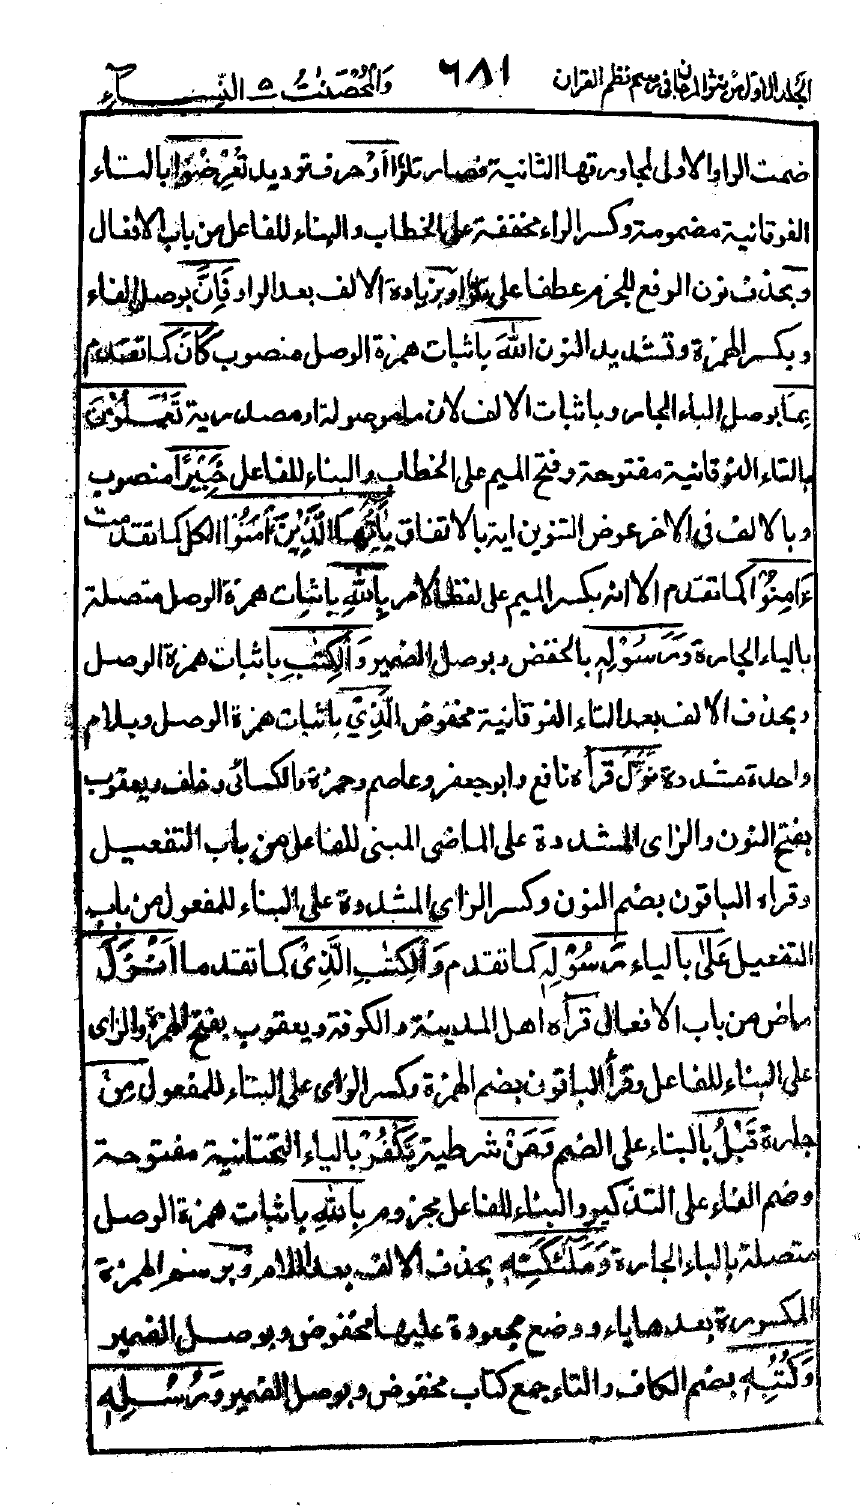 الجلد الاول من نثر المرجان في رسم نظم القران ٦٨١ وَالْمُحْصَنٰتُ ٥ النِّسَاءِ
ضمت الواو الاولى لمجاورتها الثانية فصار تلوٗا اَوْ حرف ترديد تُعْرِضُوْا بالتاء
الفوقانية مضمومة وكسر الراء مخففة على الخطاب والبناء للفاعل من باب الافعال
وبحذف نون الرفع للجزم عطفا على تلوٗا وبزيادة الالف بعد الواو فَاِنَّ بوصل الفاء
وبكسر الهمزة وتشديد النون اللهَ باثبات همزة الوصل منصوب كَانَ كما تقدم
بِمَا بوصل الباء الجارة وباثبات الالف لان ما موصولة او مصدرية تَعْمَلُوْنَ
بالتاء الفوقانية مفتوحة وفتح الميم على الخطاب والبناء للفاعل خَبِيْرًا منصوب
وبالالف في الاخر عوض التنوين اية بالاتفاق يٰاَيُّهَا الَّذِيْنَ ءَامَنُوْا الكل كما تقدمت
ءَامِنُوْا كما تقدم الا انه بكسر الميم على لفظ الامر بِاللهِ باثبات همزة الوصل متصلة
بالباء الجارة وَرَسُوْلِهٖ بالخفض وبوصل الضمير وَالْكِتٰبِ باثبات همزة الوصل
وبحذف الالف بعد التاء الفوقانية مخفوض الَّذِيْ باثبات همزة الوصل وبلام
واحدة مشددة نَزَّلَ قرأه نافع وابو جعفر وعاصم وحمزة والكسائى وخلف ويعقوب
بفتح النون والزاى المشددة على الماضى المبنى للفاعل من باب التفعيل
وقراه الباقون بضم النون وكسر الزاي المشددة على البناء للمفعول من باب
التفعيل عَلٰى بالياء رَسُوْلِهٖ كما تقدم وَالْكِتٰبِ الَّذِيْ كما تقدم ما اَنْزَلَ
ماض من باب الافعال قرأه اهل المدينة والكوفة ويعقوب بفتح الهمزة والزاى
على البناء للفاعل وقرأ الباقون بضم الهمزة وكسر الزاى على البناء للمفعول مِنْ
جارة قَبْلُ بالبناء على الضم وَمَنْ شرطية يَكْفُرْ بالياء التحتانية مفتوحة
وضم الفاء على التذكير والبناء للفاعل مجزوم بِاللهِ باثبات همزة الوصل
متصلة بالباء الجارة وَمَلٰٓئِكَتِهٖ بحذف الالف بعد اللام وبرسم الهمزة
المكسورة بعدها ياء ووضع مجعودة عليها مخفوض وبوصل الضمير
وَكُتُبِهٖ بضم الكاف والتاء جمع كتاب مخفوض وبوصل الضمير وَرُسُلِهٖ